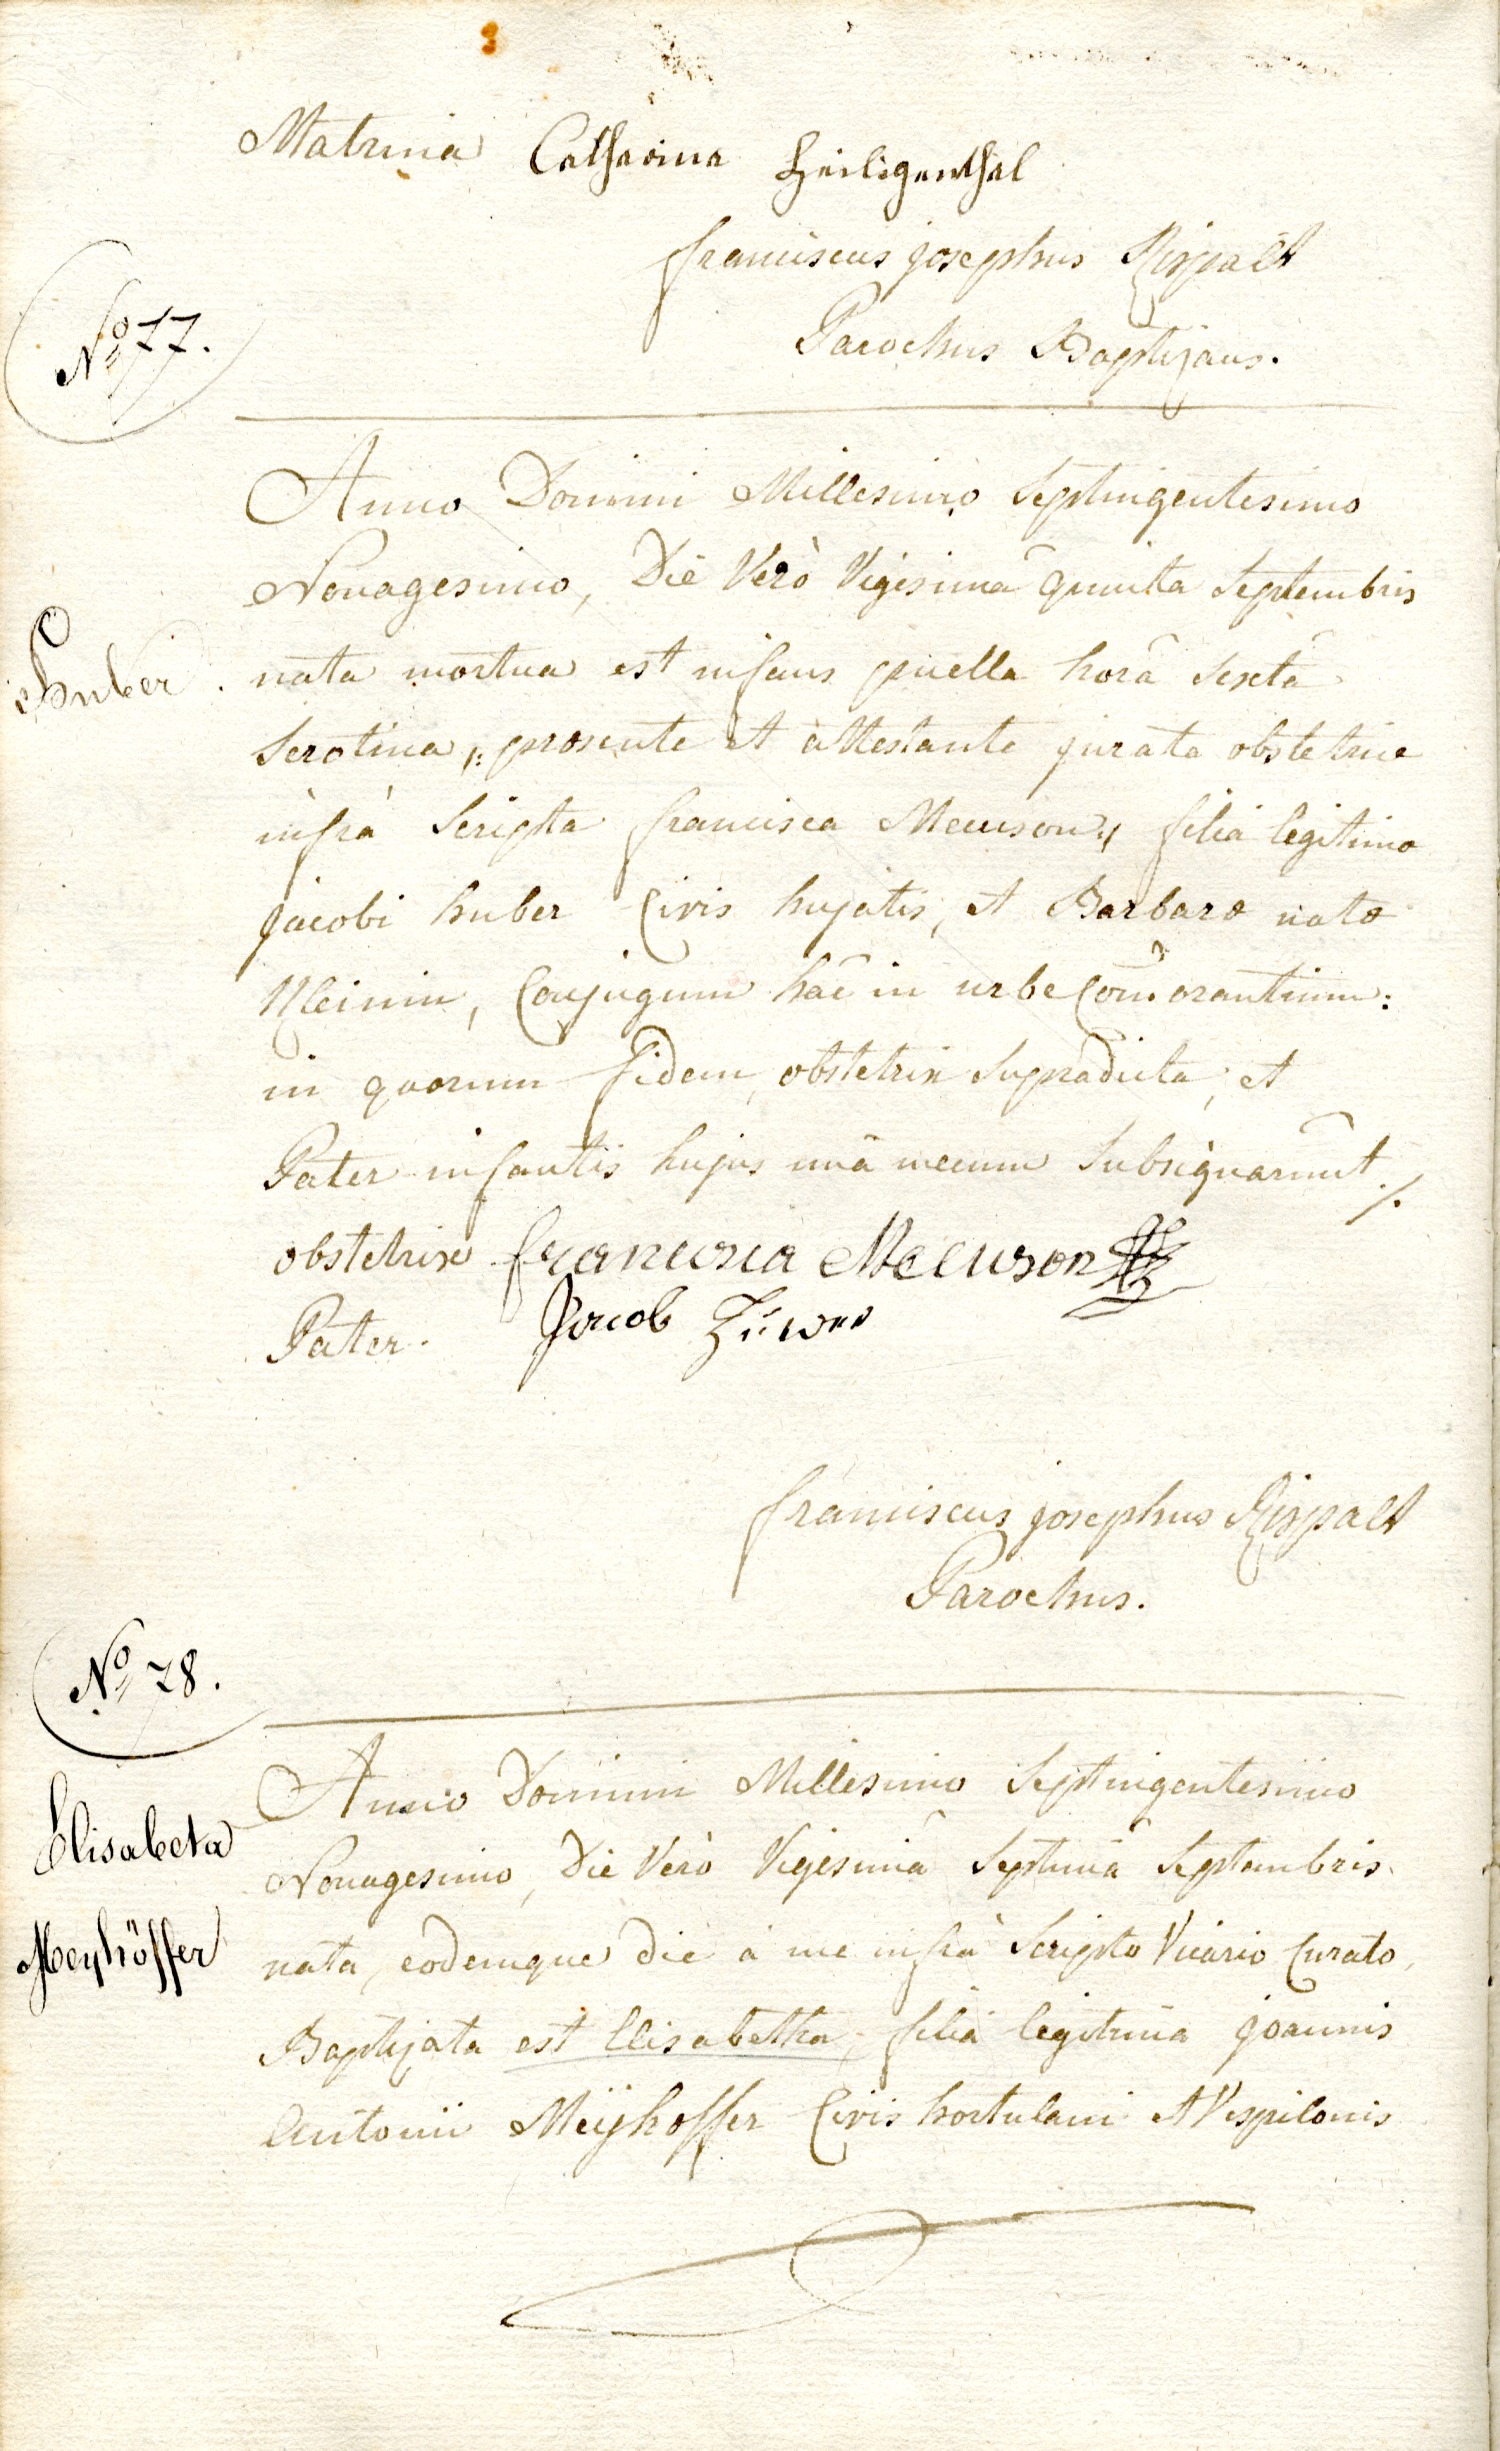 Matrina Catharina Heiligenthal
franciscus josephus Rispalt
Parochus Baptizans.
No 77.
Anno Domini Millesimo Septingentesimo
Nonagesimo, Die Verò Vigesimâ quinta Septembris
Huber.
nata mortua est infans puella horâ Sextâ
Serotina, presente et attestante jurata obstetrice
infrà Scripta francisca Meeuson, filia legitima
jacobi huber Civis hujatis, et Barbaræ natæ
Kleinin, Conjugum hâc in urbe Com̃orantium:
in quorum fidem, obstetrix Supradicta, et
Pater infantis hujus unâ mecum Subsignarunt ./.
obstetrix francisca Meeuson
Pater. Jacob
franciscus josephus Rispalt
Parochus.
No 78.
Anno Domini Millesimo Septingentesimo
Elisabeta
Nonagesimo, Die Verò Vigesimâ Septimâ Septembris
Meyhöffer
nata, eodemque die à me infrà Scripto Vicario Curato,
Baptizata est Elisabetha, filia legitima joannis
Antonii Meijhoffer Civis hortulani et Vespilonis